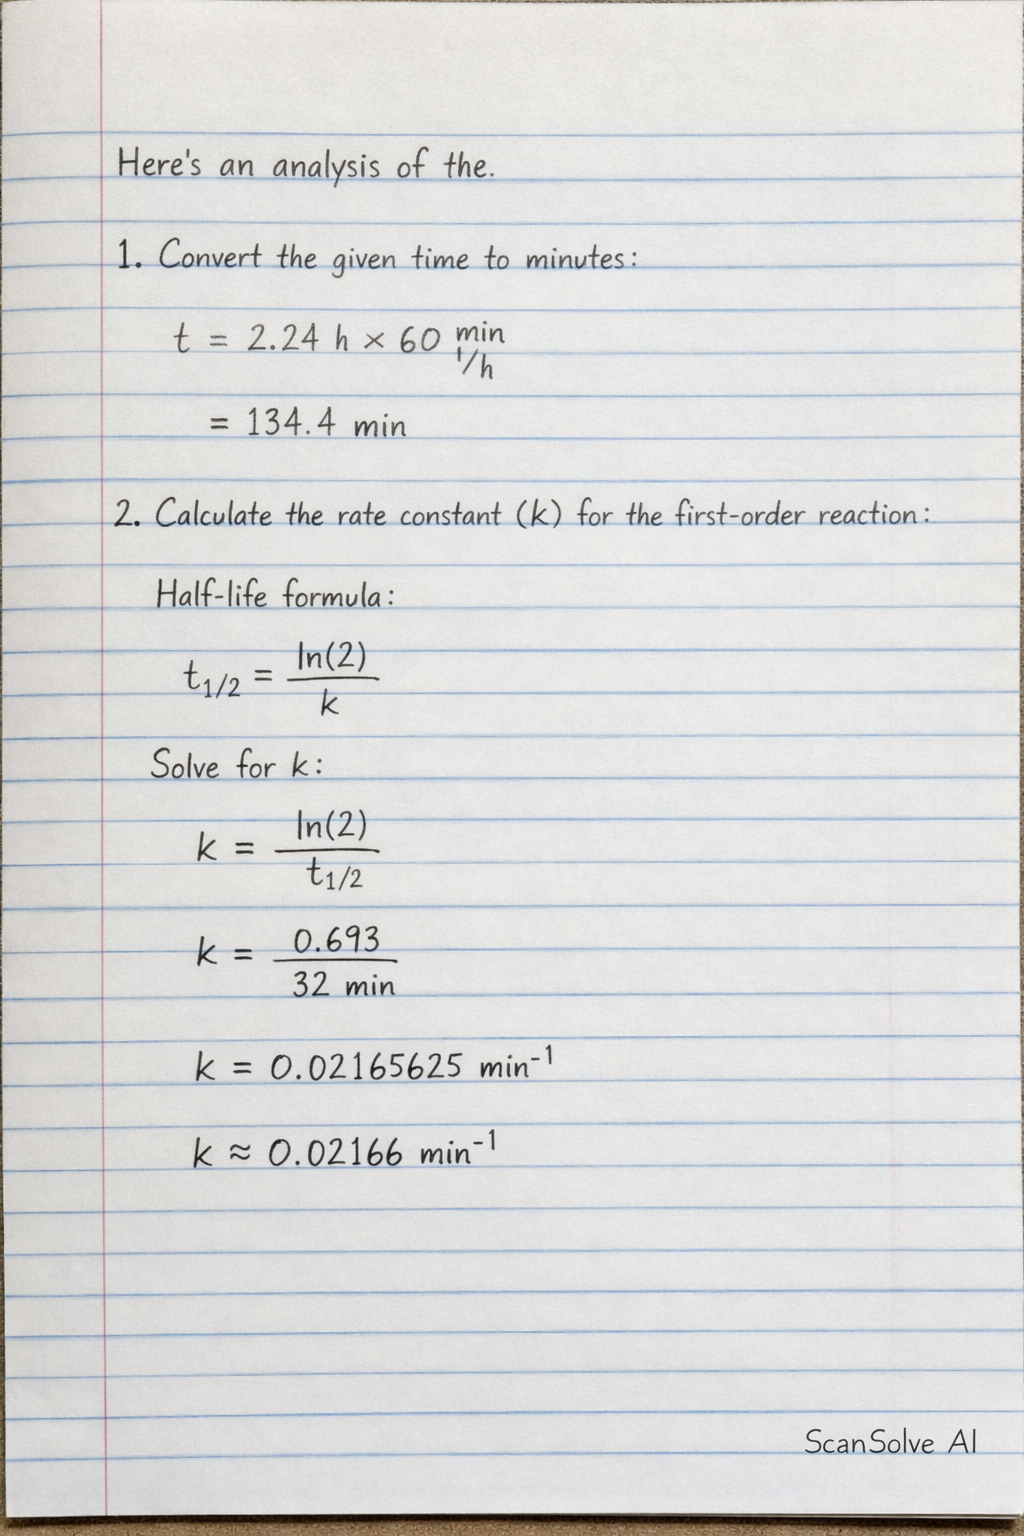 Here's an analysis of the.
1. Convert the given time to minutes:
t = 2.24 h × 60 min
1/h
= 134.4 min
2. Calculate the rate constant (k) for the first-order reaction:
Half-life formula:
t1/2 = ln(2)
k
Solve for k:
k = ln(2)
t1/2
k = 0.693
32 min
k = 0.02165625 min⁻¹
k ≈ 0.02166 min⁻¹
ScanSolve AI